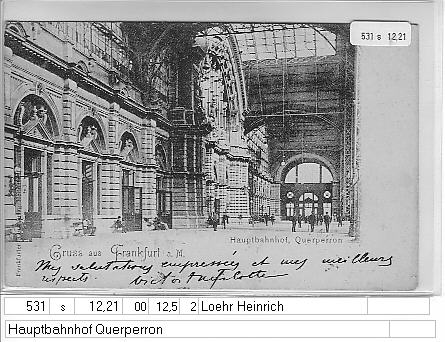 531 s 12,21
Hauptbahnhof, Querperron
Gruss aus Frankfurt a. M.
Mes salutations empressées et mes meilleurs
respects Victor
531 s 12,21 00 12,5 2 Loehr Heinrich
Hauptbahnhof Querperron